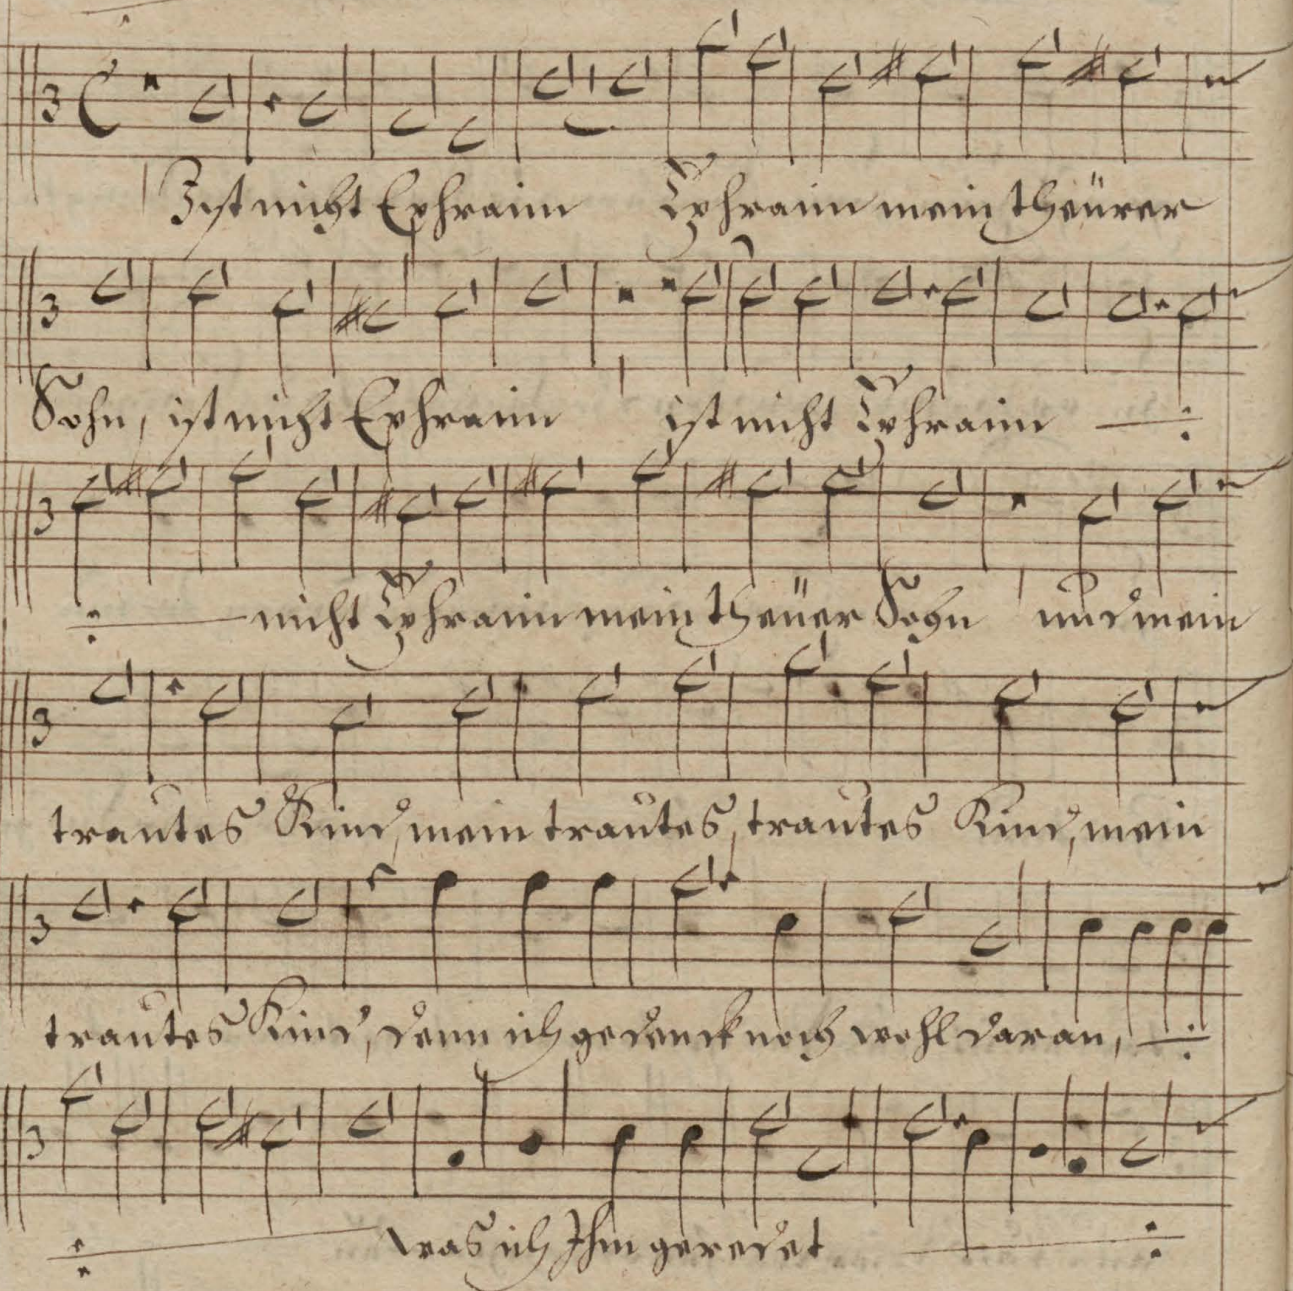 Ist nicht Ephraim Ephraim mein theürer
Sohn, ist nicht Ephraim ist nicht Ephraim
nicht Ephraim mein theüer Sohn und mein
trautes Kind, mein trautes, trautes Kind, mein
trautes Kind, denn ich gedenck noch wohl daran,
was ich Ihm geredet